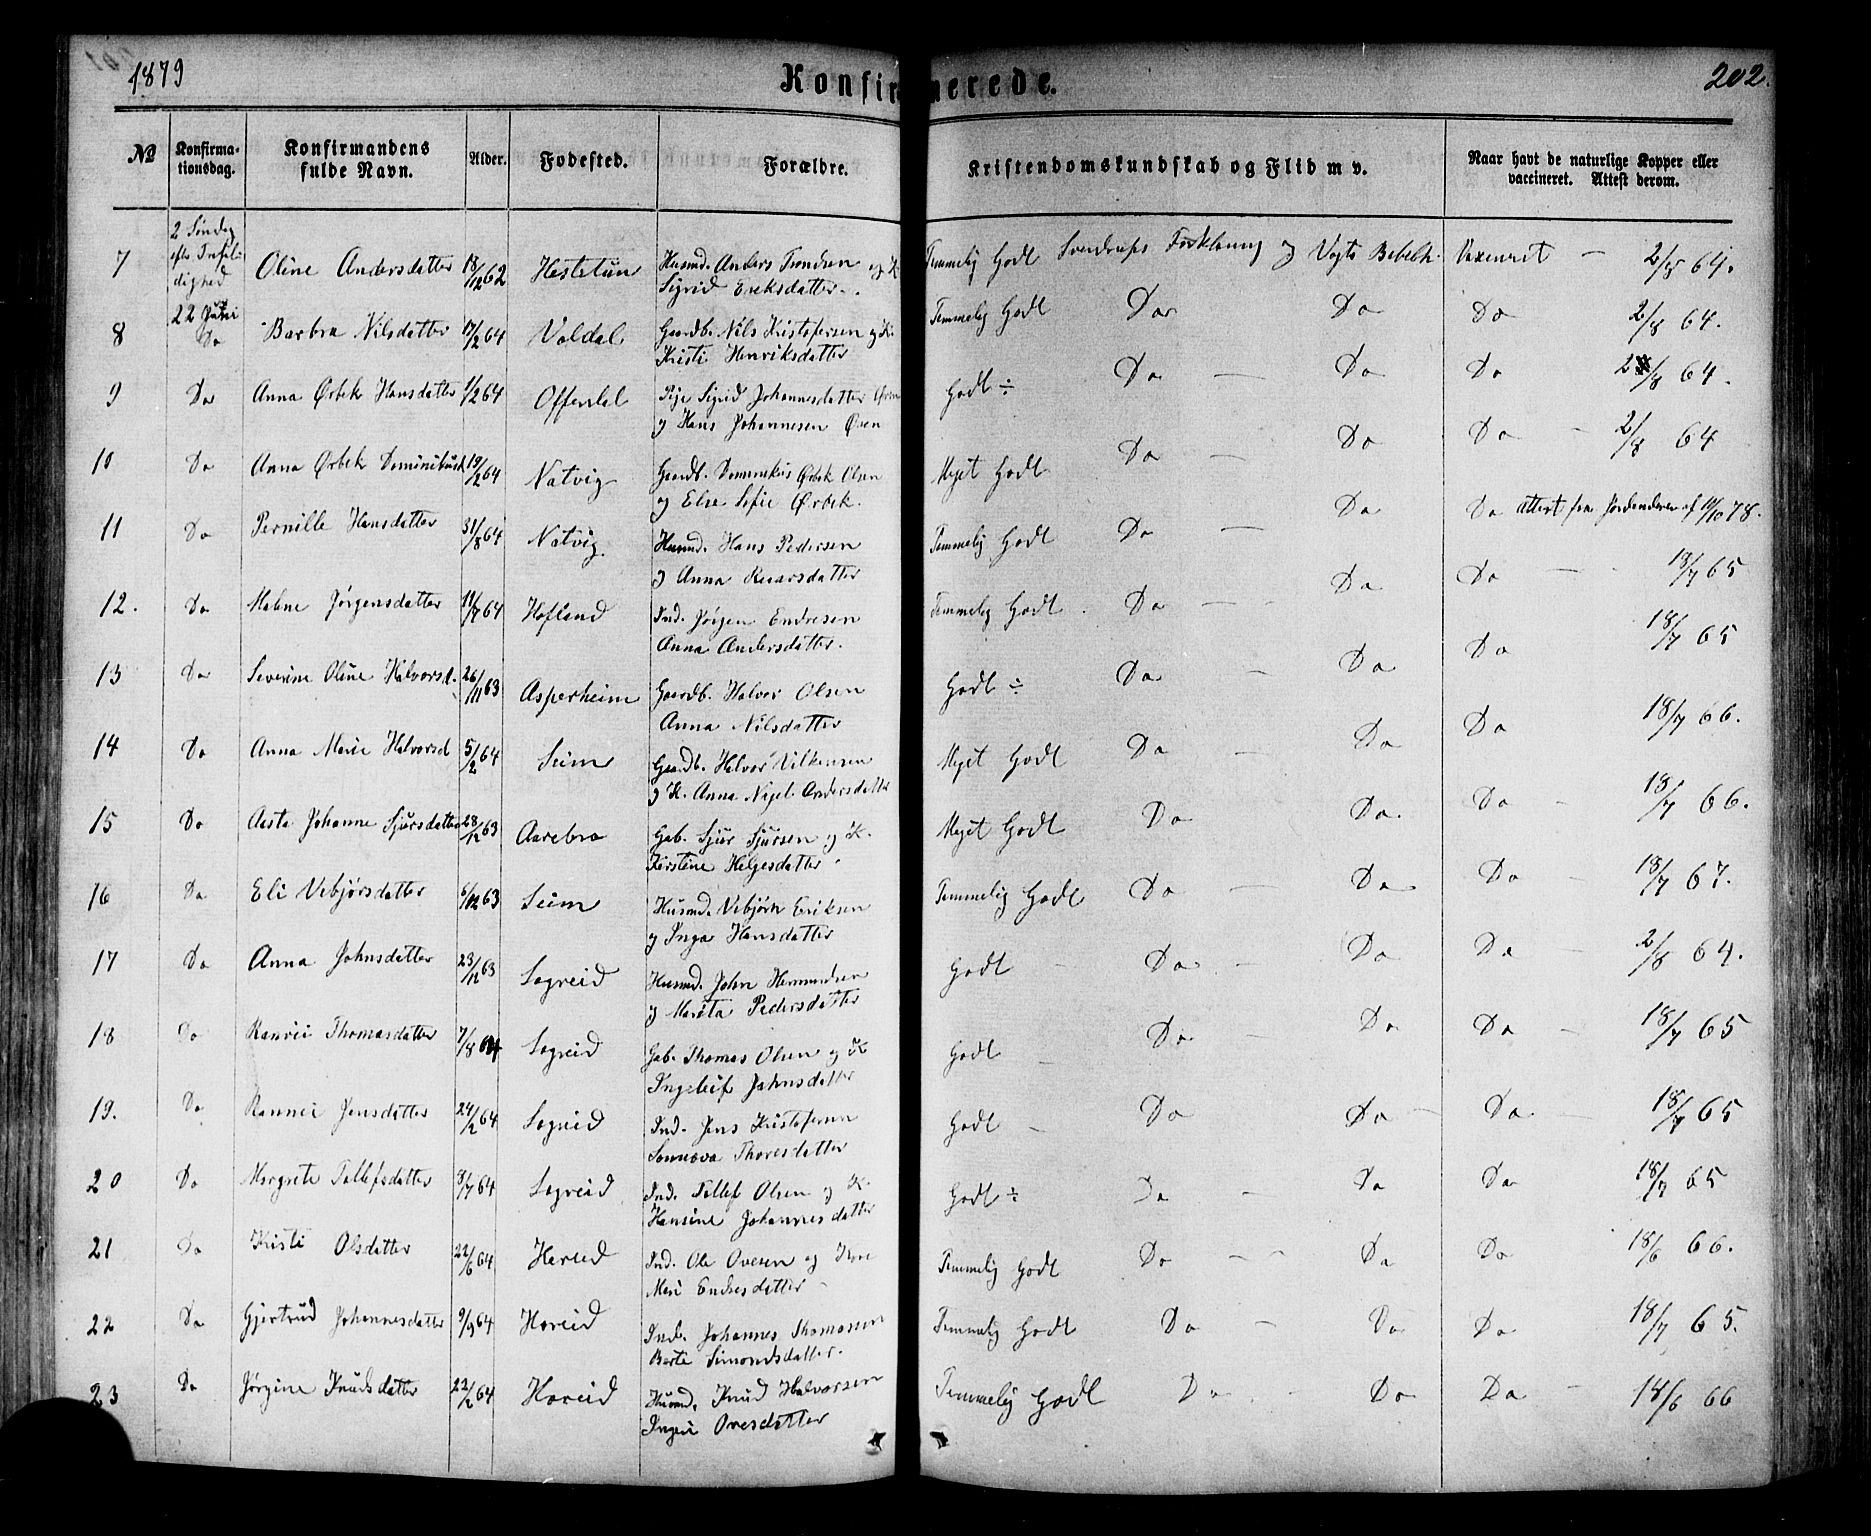 1879 Konfirmerede. 202.
№ Konfirma-tionsdag. Konfirmandens fulde Navn. Alder. Fødested. Forældre. Kristendomskundskab og Flid m v. Naar havt de naturlige Kopper eller vaccineret. Attest derom.
7 2 Søndag efter Trefoldighed 22 Juni Oline Andersdatter 18/12 62 Hestetun Husmd. Anders og K Sigrid Ereksdatter. Temmelig Godt Sverdrups Forklaring og Vogts Bibelh. Vaxeneret — 2/8 64.
8 Do Barbra Nilsdatter 17/2 64 Voldal Gaardb. Nils Kristofersen og K. Kristi Henriksdatter Temmelig Godt Do Do Do 2/8 64.
9 Do Anna Ørbek Hansdatter 1/2 64 Offerdal Pige Sigrid Johannesdatter og Hans Johannesen Øren Godt ÷ Do — Do Do /8 64.
10 Do Anna Ørbek 19/2 64 Natvig Gaardb. Dominikus Ørbek Olsen og Else Sofie Ørbek. Meget Godt Do — Do Do — 2/8 64
11 Do Pernille Hansdatter 31/8 64 Natvig. Husmd. Hans Pedersen og Anna Temmelig Godt Do — Do Do Attest fra af 78.
12. Do Malene Jørgensdatter 11/7 64 Hofland Ind. Jørgen Endresen Anna Andersdatter. Temmelig Godt. Do — Do Do — 18/7 65
13 Do Severine Oline Halvorsd. 26/11 63 Asperheim Gaardb. Halvor Olsen Anna Nilsdatter Godt ÷ Do — Do Do 18/7 65
14 Do Anna Marie Halvorsd 5/2 64 Seim Gaardb. Halvor Vilhemsen og K. Anna Andersdatter Meget Godt Do — Do Do 18/7 66.
15 Do Johanne Sjursdatter 28/12 63 Aarebro Gab. Sjur Sjursen og K. Kerstine Helgesdatter Meget Godt Do Do. Do — 18/7 66.
16 Do Eli Vebjørsdatter 6/12 63 Seim Husmd. Vebjørn Eriksen og Inga Hansdatter Temmelig Godt Do — Do Do — 18/7 67.
17 Do Anna Johnsdatter 23/12 63 Sogreid Husmd. John Hermundsen og Marita Pedersdatter Godt — Do — Do Do — 2/8 64.
18 Do Ranvei Thomasdatter 7/8 64 Sogreid Gab. Thomas Olsen og K Ingeleif Johnsdatter Godt — Do — Do Do — 18/7 65
19. Do Ranvei Jensdatter 24/2 64 Sogreid Ind. Jens Kristofersen Sonneva Thoresdatter Godt — Do Do — Do — 18/7 65
20 Do Margrete Tollefsdatter 9/7 64 Sogreid Ind. Tollef Olsen og K. Hansine Johannesdatter Godt ÷ Do — Do Do 18/7 65
21 Do Kristi Olsdatter 22/6 64 Hereid Ind. Ole Ovesen og Kone Mari Endresdatter Temmelig Godt Do — Do Do 18/6 66.
22 Do Gjertrud Johannesdatter 9/9 64 Hereid Ind. Johannes Thomassen Berte Simondsdatter. Temmelig Godt Do — Do Do — 18/7 65.
23 Do Jørgine Knudsdatter 22/2 64 Hereid Husmd. Knud Halvorsen Ingeri Ovesdatter Temmelig Godt Do — Do Do — 18/6 66